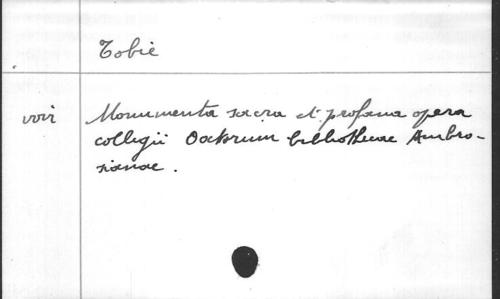 Tobie
voir Monumenta sacra et profana opera
collegii Doctorum bibliothecae Ambro-
sianae.